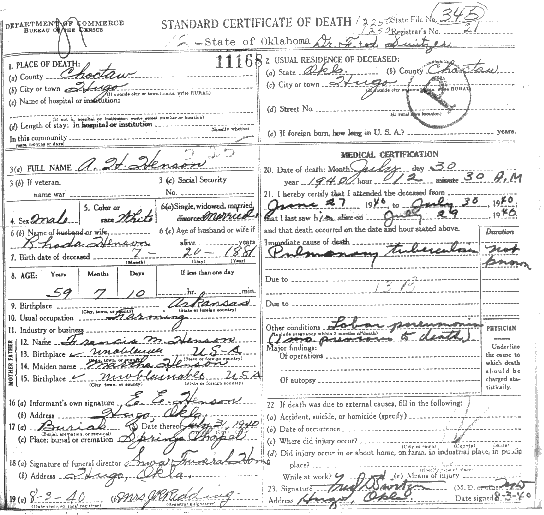 DEPARTMENT OF COMMERCE
BUREAU OF THE CENSUS
STANDARD CERTIFICATE OF DEATH
State File No. 345
Registrar's No. 21
State of Oklahoma
11168
1. PLACE OF DEATH:
(a) County Choctaw
(b) City or town Hugo
(c) Name of hospital or institution:
(d) Length of stay: In hospital or institution
In this community
2. USUAL RESIDENCE OF DECEASED:
(a) State Okla. (b) County Choctaw
(c) City or town Hugo
(d) Street No.
(e) If foreign born, how long in U. S. A.? years.
3(a) FULL NAME A. H. Henson
3(b) If veteran, name war
3(c) Social Security No.
4. Sex Male
5. Color or race White
6(a) Single, widowed, married, divorced Married
6(b) Name of husband or wife Rhoda Henson
6(c) Age of husband or wife if alive years
7. Birth date of deceased
8. AGE: Years Months Days If less than one day
59 7 10 hr. min.
9. Birthplace Arkansas
10. Usual occupation Farming
11. Industry or business
12. Name Francis M. Henson
13. Birthplace USA
14. Maiden name Martha Henson
15. Birthplace USA
16(a) Informant's own signature E. E. Henson
(b) Address Hugo, Okla.
17(a) Burial (b) Date thereof July 31, 1940
(c) Place: burial or cremation Springs Chapel
18(a) Signature of funeral director Funeral Home
(b) Address Hugo, Okla.
19(a) 8-3-40 (b) Mrs
MEDICAL CERTIFICATION
20. Date of death: Month July day 30
year 1940 hour 12 minute 30 A.M
21. I hereby certify that I attended the deceased from
June 27 1940 to July 30 1940
that I last saw him alive on July 29 1940
and that death occurred on the date and hour stated above.
Immediate cause of death Duration
Pulmonary tuberculosis not known
Due to
Due to
Other conditions Lobar pneumonia
(1 mo previous to death)
Major findings:
Of operations
Of autopsy
PHYSICIAN
Underline the cause to which death should be charged statistically.
22. If death was due to external causes, fill in the following:
(a) Accident, suicide, or homicide (specify)
(b) Date of occurrence
(c) Where did injury occur?
(d) Did injury occur in or about home, on farm, in industrial place, in public place?
While at work? (e) Means of injury
23. Signature
Address Hugo, Okla Date signed 8-3-40